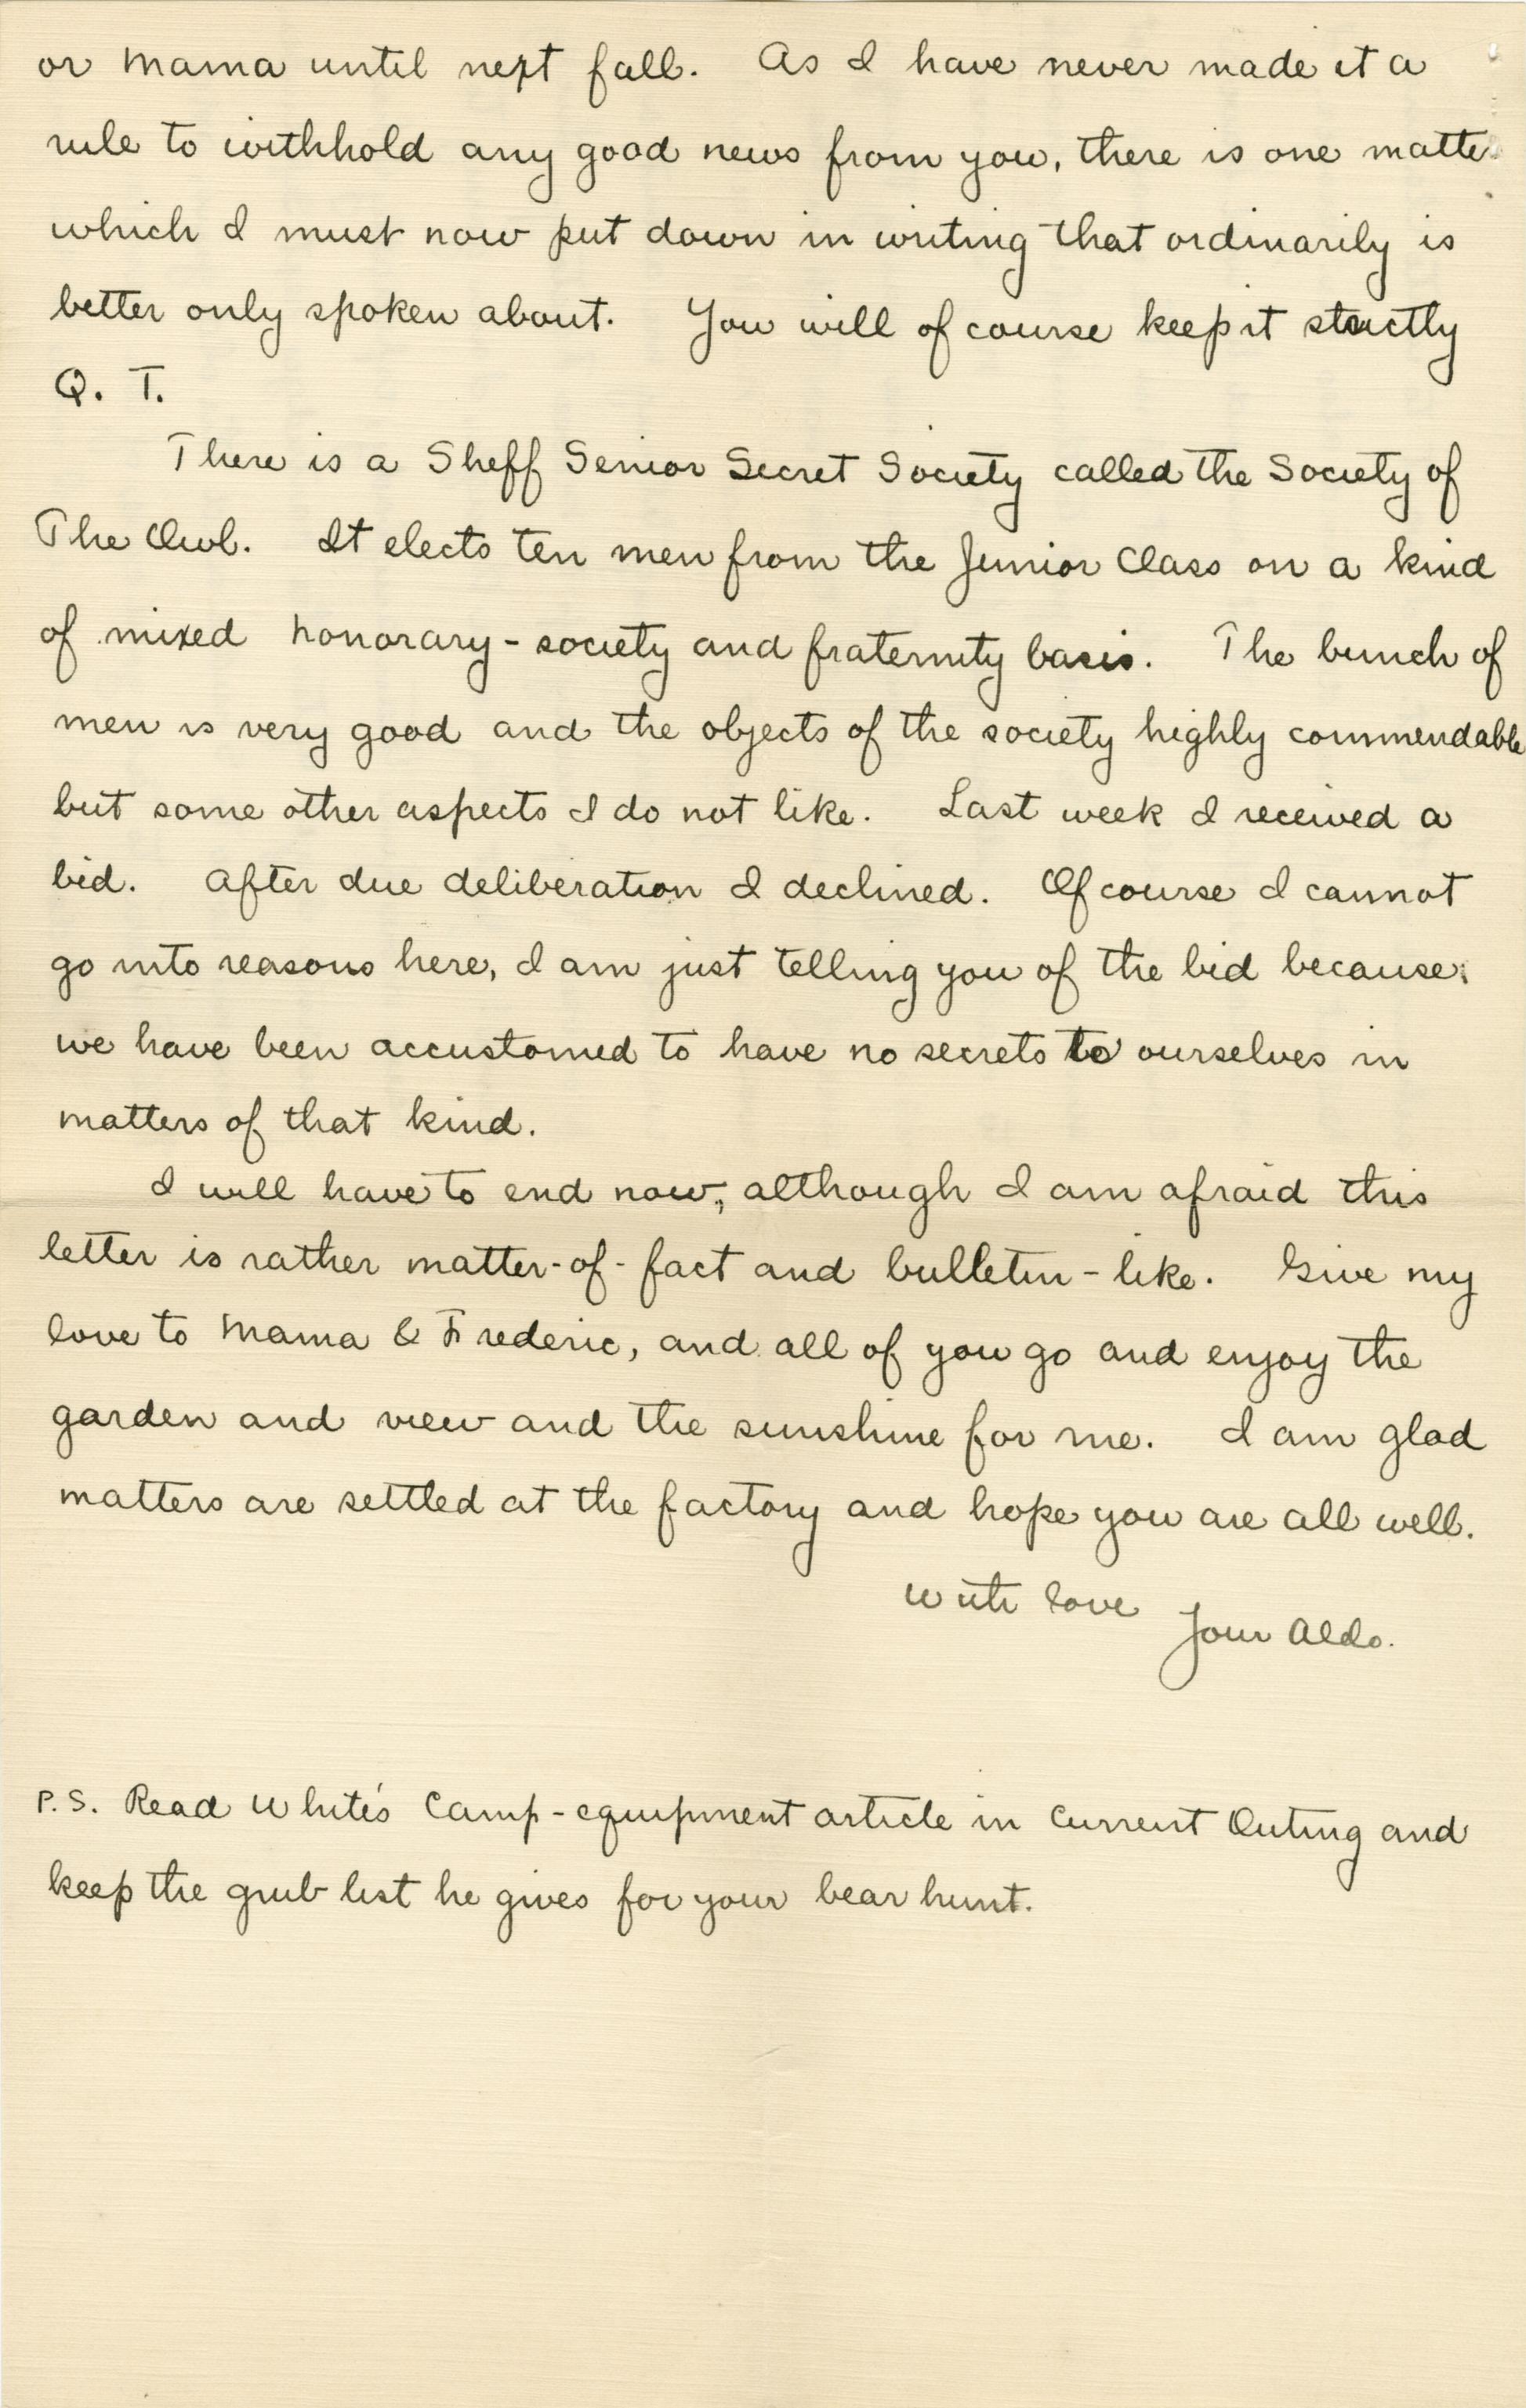 or Mama until next fall. As I have never made it a
rule to withhold any good news from you, there is one matte
which I must now put down in writing that ordinarily is
better only spoken about. You will of course keep it strictly
Q. T.
There is a Sheff Senior Secret Society called the Society of
The Owl. It elects ten men from the Junior Class on a kind
of mixed honorary-society and fraternity basis. The bunch of
men is very good and the objects of the society highly commendable
but some other aspects I do not like. Last week I received a
bid. After due deliberation I declined. Of course I cannot
go into reasons here, I am just telling you of the bid because
we have been accustomed to have no secrets to ourselves in
matters of that kind.
I will have to end now, although I am afraid this
letter is rather matter-of-fact and bulletin-like. Give my
love to Mama & Frederic, and all of you go and enjoy the
garden and view and the sunshine for me. I am glad
matters are settled at the factory and hope you are all well.
With love
Your Aldo.
P.S. Read White's Camp-equipment article in Current Outing and
keep the grub list he gives for your bear hunt.